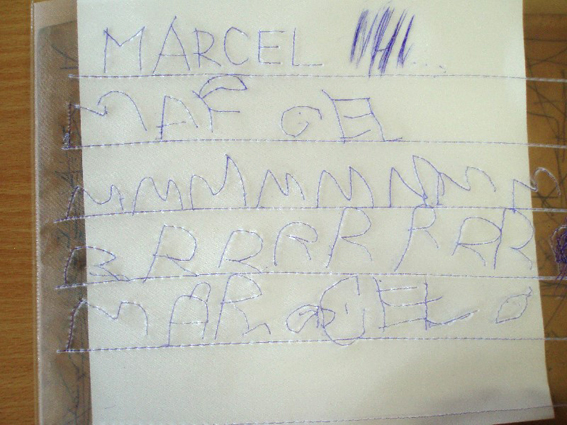 MARCEL
MAR CEL
MMMMMMMMM
RRRRRRRR
MAR CEL